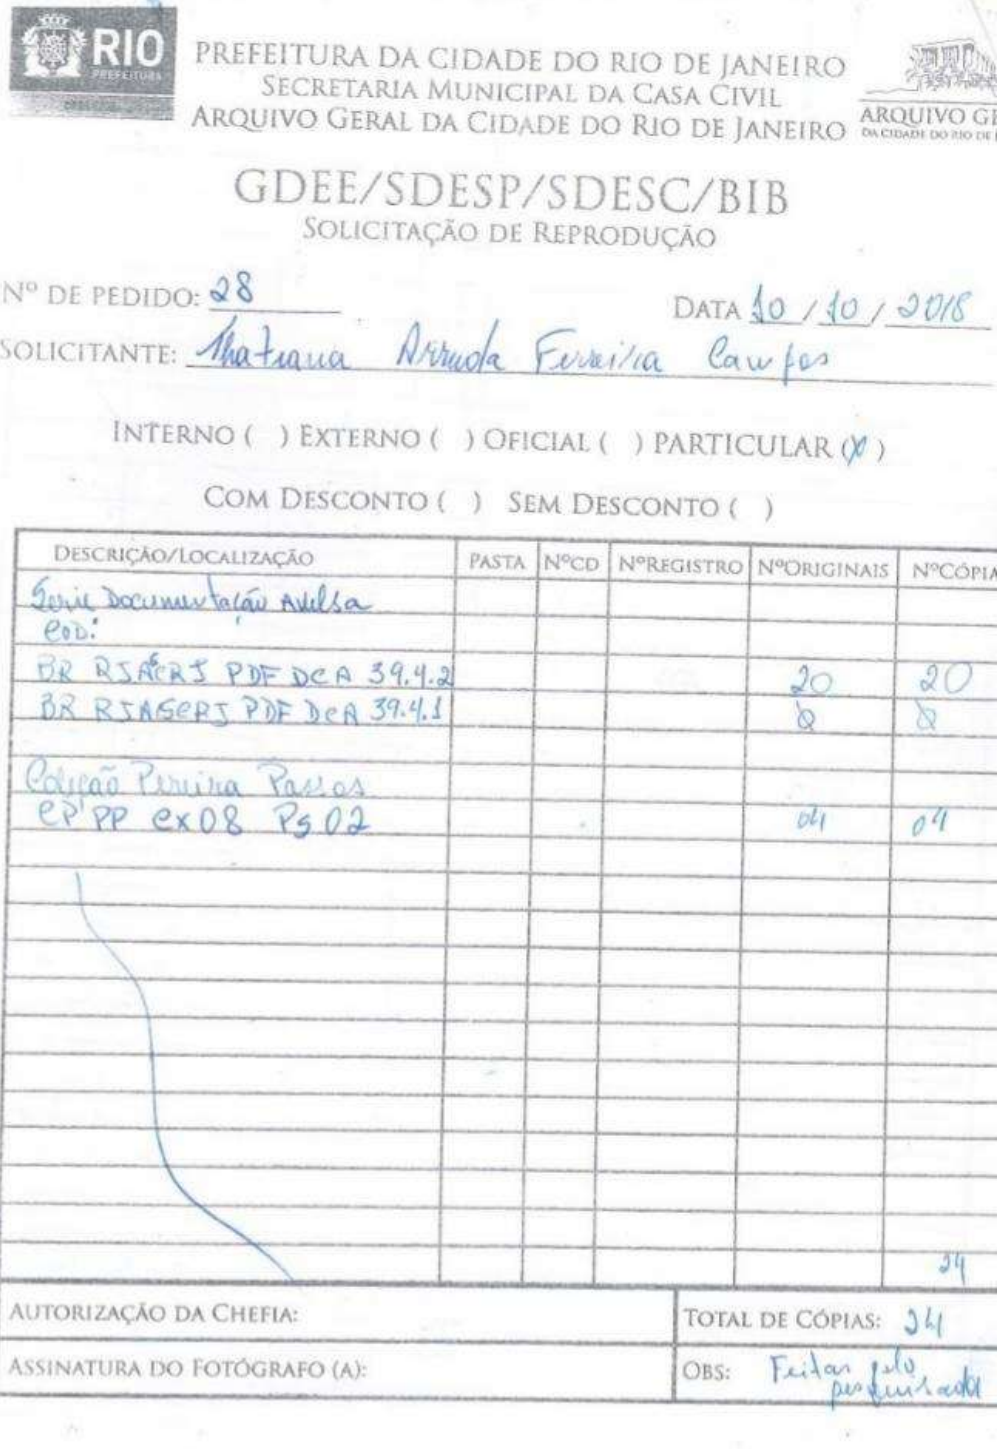 RIO
PREFEITURA
PREFEITURA DA CIDADE DO RIO DE JANEIRO
SECRETARIA MUNICIPAL DA CASA CIVIL
ARQUIVO GERAL DA CIDADE DO RIO DE JANEIRO
ARQUIVO GE
DA CIDADE DO RIO DE
GDEE/SDESP/SDESC/BIB
SOLICITAÇÃO DE REPRODUÇÃO
Nº DE PEDIDO: 28 DATA 10 / 10 / 2018
SOLICITANTE: Thatiana Arruda Ferreira Campos
INTERNO ( ) EXTERNO ( ) OFICIAL ( ) PARTICULAR (X)
COM DESCONTO ( ) SEM DESCONTO ( )
DESCRIÇÃO/LOCALIZAÇÃO PASTA NºCD NºREGISTRO NºORIGINAIS NºCÓPIA
Serie Documentação Avulsa
COD:
BR RJAGCRJ PDF DCA 39.4.2 20 20
BR RJAGCRJ PDF DCA 39.4.1
Coleção Pereira Passos
CP PP CX08 PS02 04 04
24
AUTORIZAÇÃO DA CHEFIA: TOTAL DE CÓPIAS: 24
ASSINATURA DO FOTÓGRAFO (A): OBS: Feitas pelo
pesquisador